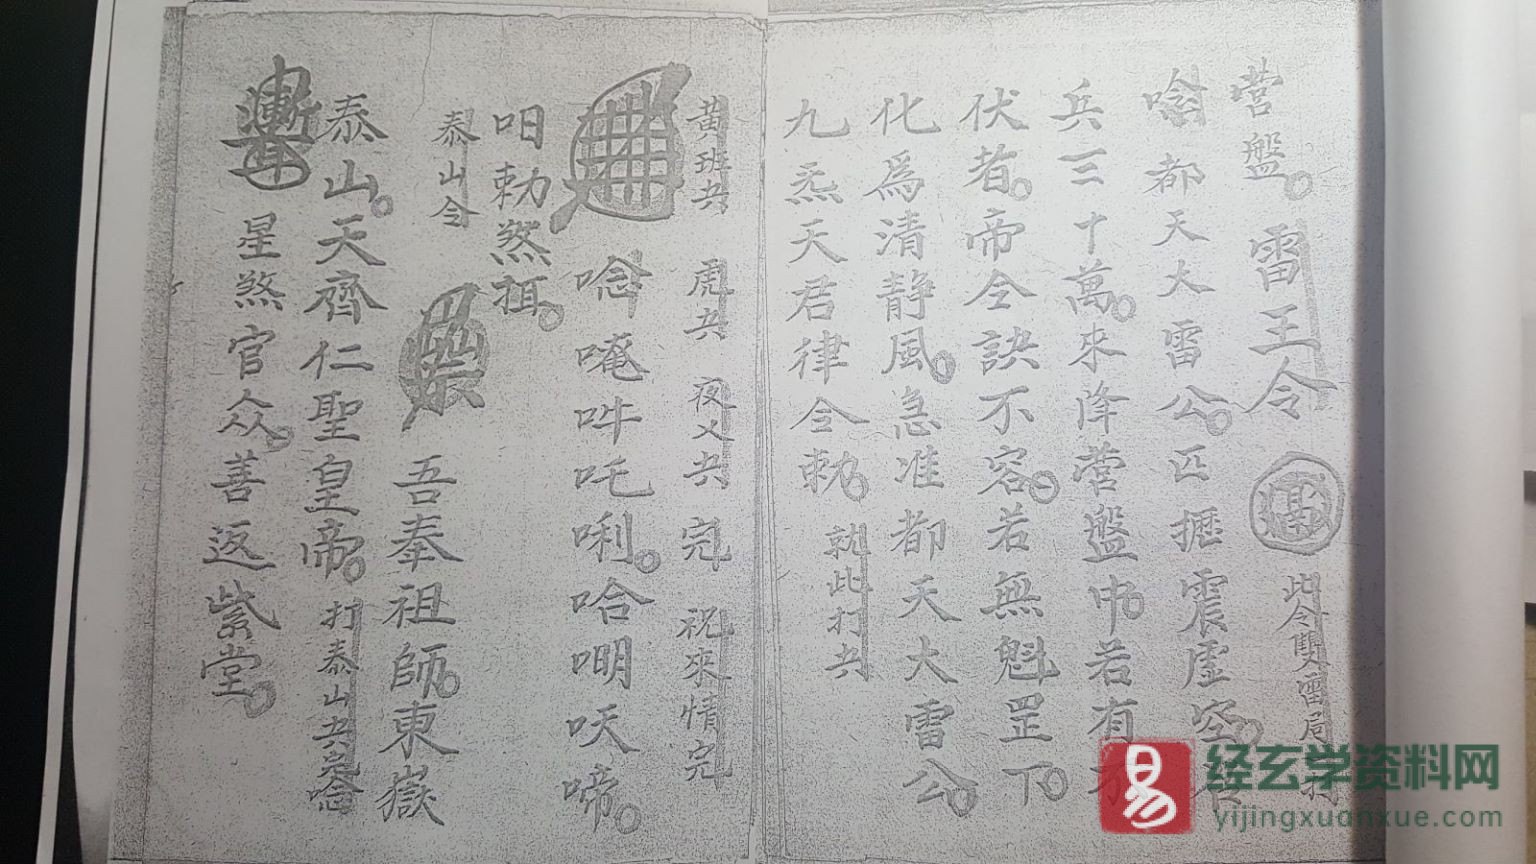 營盤。雷王令 此令雙雷局 打
都天大雷公。匹攊震虛空。
兵三十萬。來降營盤中。若有不
伏者。帝令訣不容。若無魁罡下。
化為清静風。急准都天大雷公。
九炁天君律令勅。就此打兵
黃班兵 虎兵 夜乂兵 完 祝來情完
唸唵吽吒唎。哈唎㕭啼。
呬勅煞抯。
泰山令 吾奉祖師。東嶽
泰山。天齊仁聖皇帝。打泰山兵完唸
星煞官众。善返紫堂。
易
经玄学资料网
yijingxuanxue.com